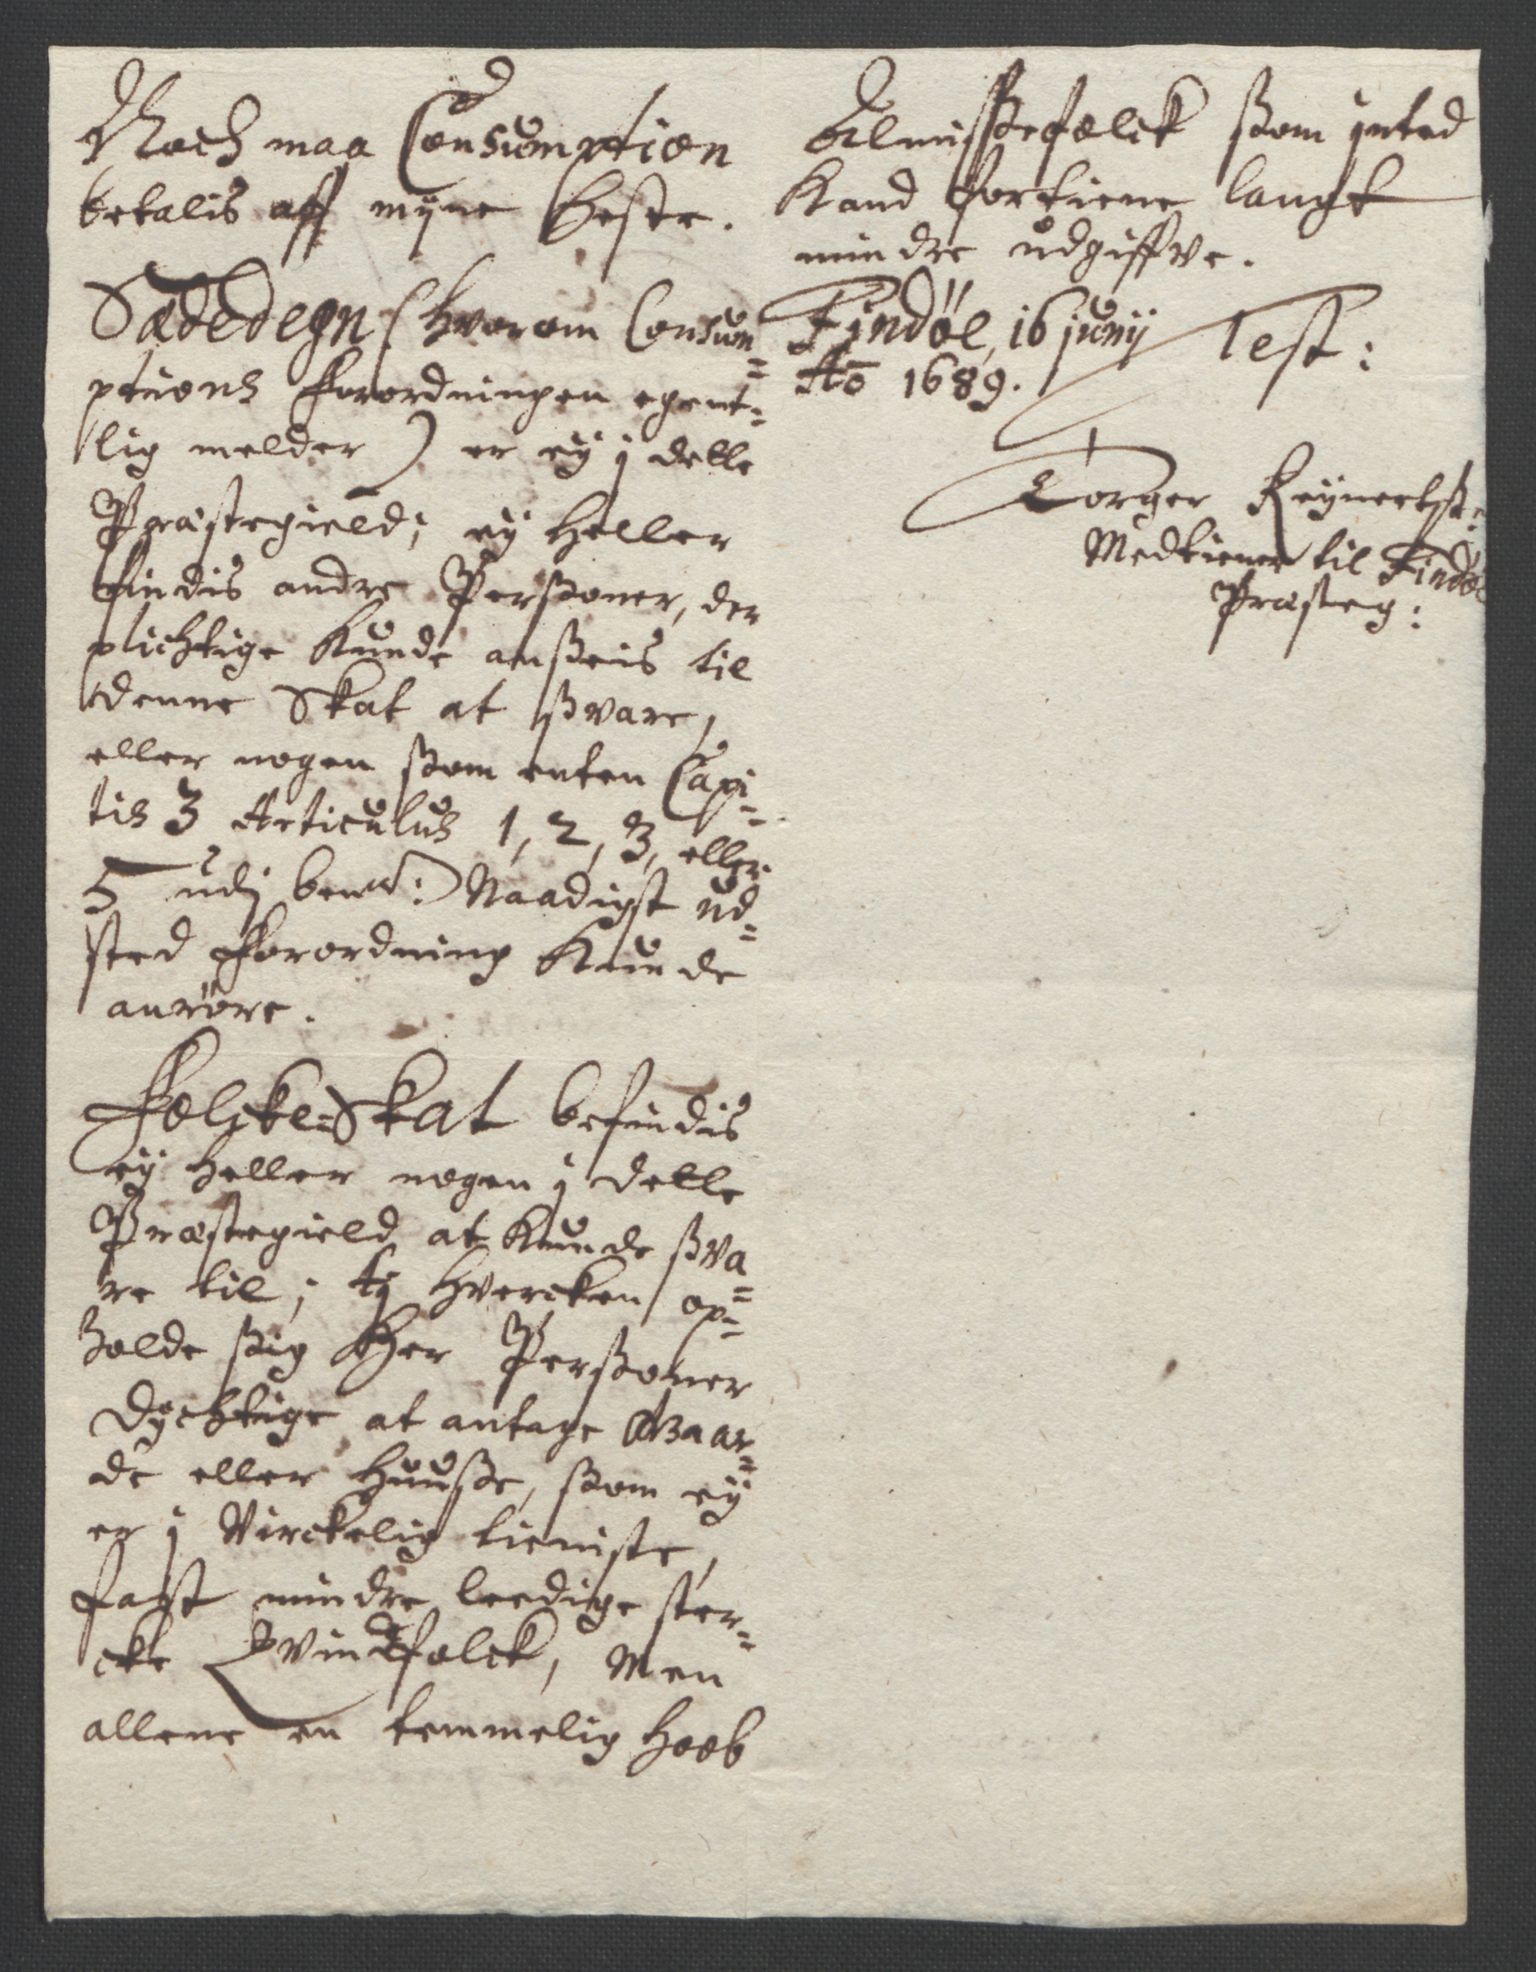 Noch maa Consumption
betalis aff myne Heste.
Sædedegn (hvorom Consum=
ptions Forordningen egent=
lig melder) er ey j dette
Præstegield; ey heller
findis andre Perßoner, der
plichtige kunde anßeis til
denne Skat at ßvare,
eller nogen ßom enten Capi=
tis 3 Articulus 1, 2, 3, eller
5 udj bem.te: Naadigst ud=
sted Forordning kunde
anröre.
Folcke=Skat befindis
ey heller nogen j dette
Præstegield at kunde ßva=
re til; ty hvercken op=
holde ßig Her Perßoner
Dychtige at antage Gaar=
de eller Huuße, ßom ey
er j Virckelig tieniste,
fast mindre leedige ster=
cke Qvindfolck, Men
allene en temmelig Hoob
Almißefolck ßom jnted
Kand fortiene langt
mindre udgiffve.
Findöe, 16 junij
Ao 1689.
Test:
Torger Reynertß:
Medtiener til Findöe
Præsteg: